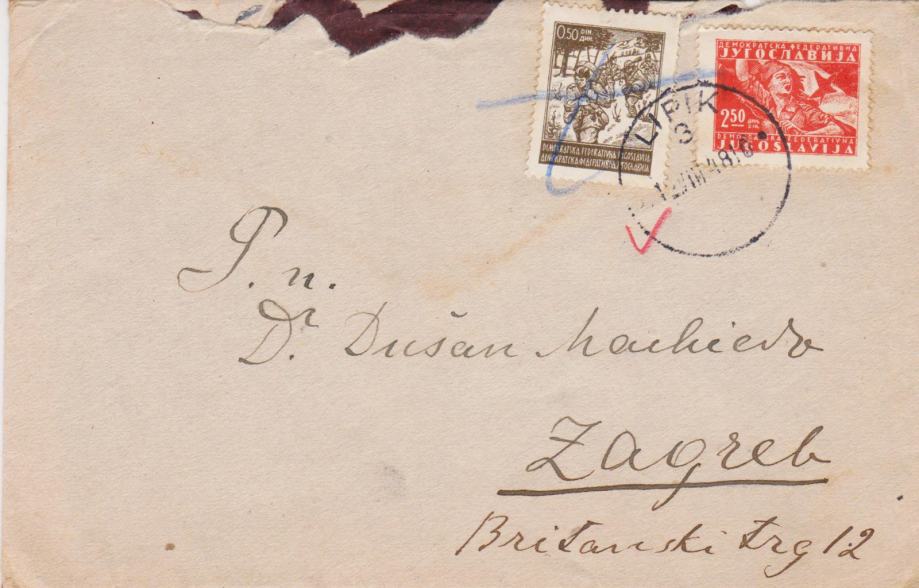 0.50 DIN
ДИН
DEMOKRATSKA FEDERATIVNA JUGOSLAVIJA
ДЕМОКРАТСКА ФЕДЕРАТИВНА ЈУГОСЛАВИЈА
ДЕМОКРАТСКА ФЕДЕРАТИВНА
ЈУГОСЛАВИЈА
2 50
DEMOKRATSKA FEDERATIVNA
JUGOSLAVIJA
LIPIK
3
P. n.
Dr. Dušan Machiedo
Zagreb
Britanski trg 12